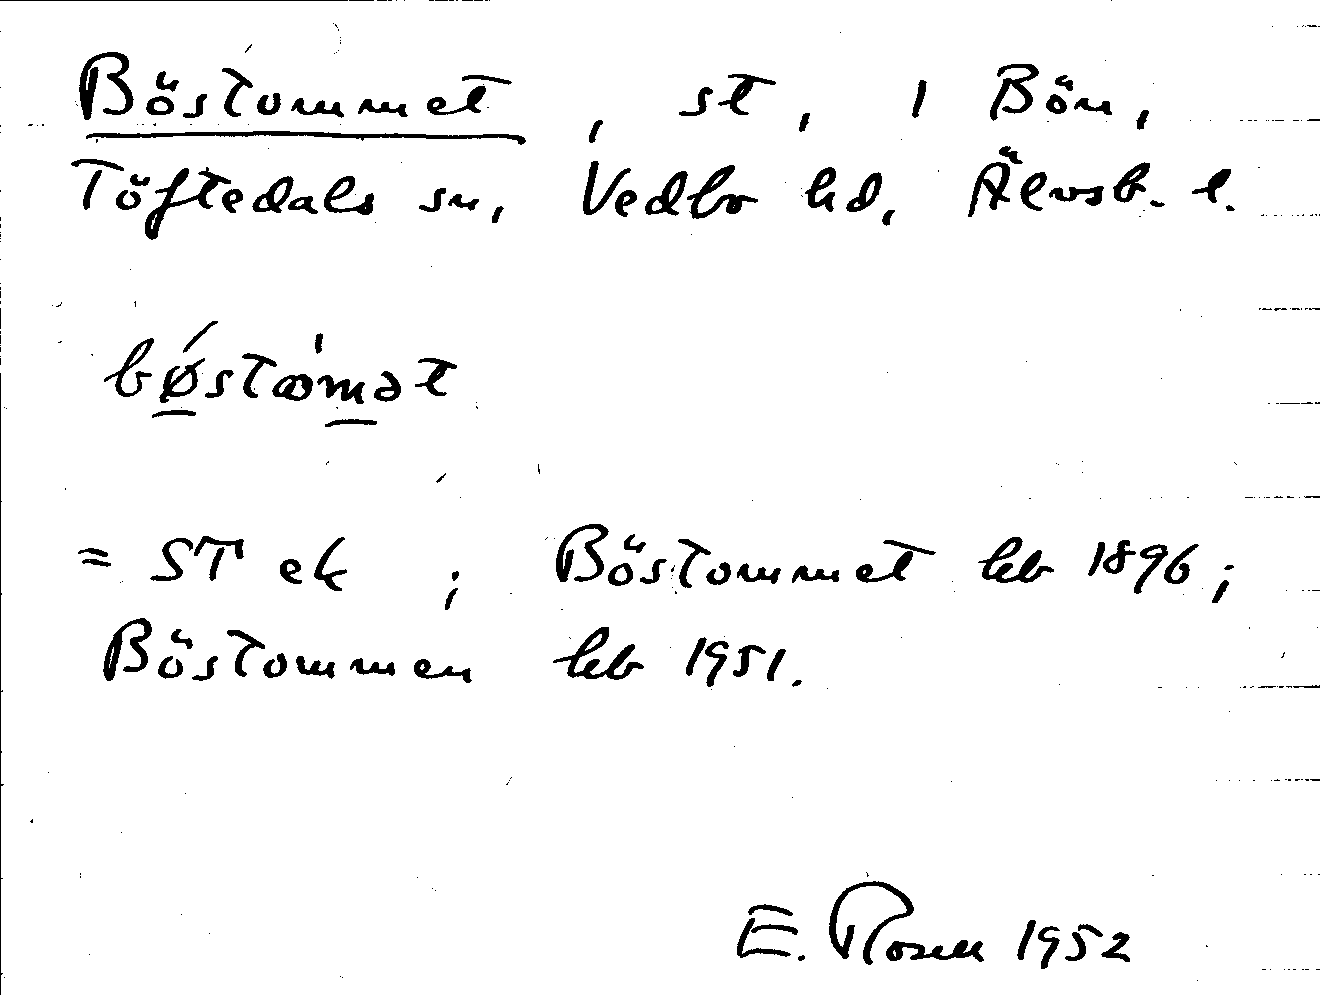 Böstommet, st, 1 Bön,
Töftedals sn, Vedbo hd, Älvsb. l.
bǿstꞷmət
= ST ek ; Böstommet hb 1896;
Böstommen hb 1951.
E. Rosell 1952